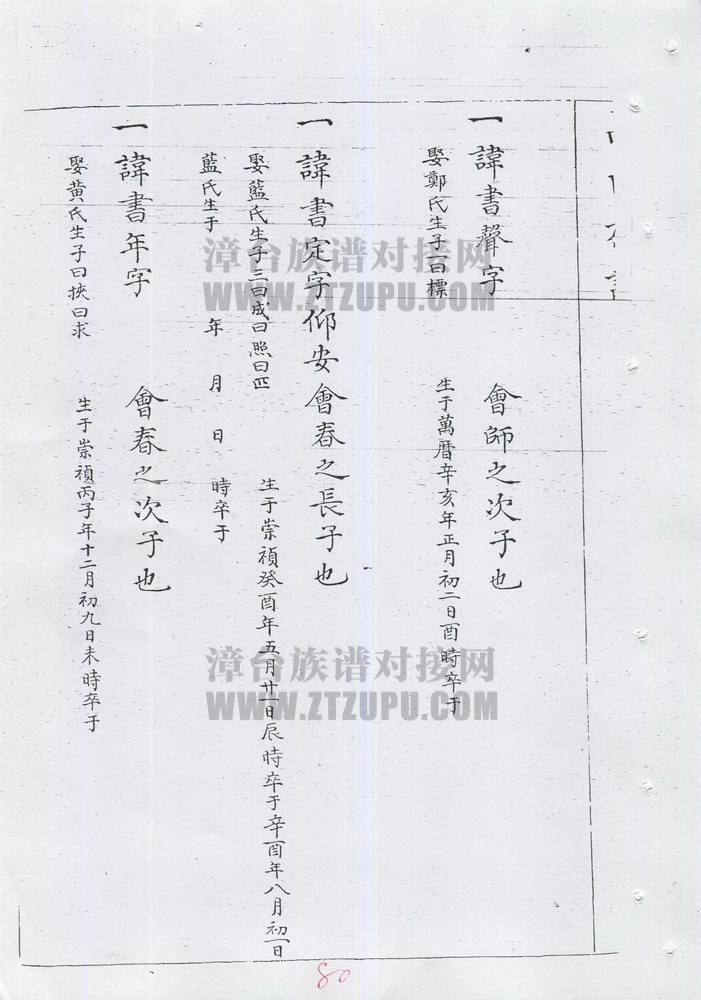 一諱書聲字
會師之次子也
娶鄭氏生子一曰標
生于萬曆辛亥年正月初二日酉時卒于
一諱書定字仰安會春之長子也
娶藍氏生子三曰成曰照曰匹
生于崇禎癸酉年五月廿一日辰時卒于辛酉年八月初一日
藍氏生于 年 月 日 時卒于
一諱書年字
會春之次子也
娶黃氏生子曰挾曰求
生于崇禎丙子年十二月初九日未時卒于
漳台族谱对接网
WWW.ZTZUPU.COM
漳台族谱对接网
WWW.ZTZUPU.COM
80